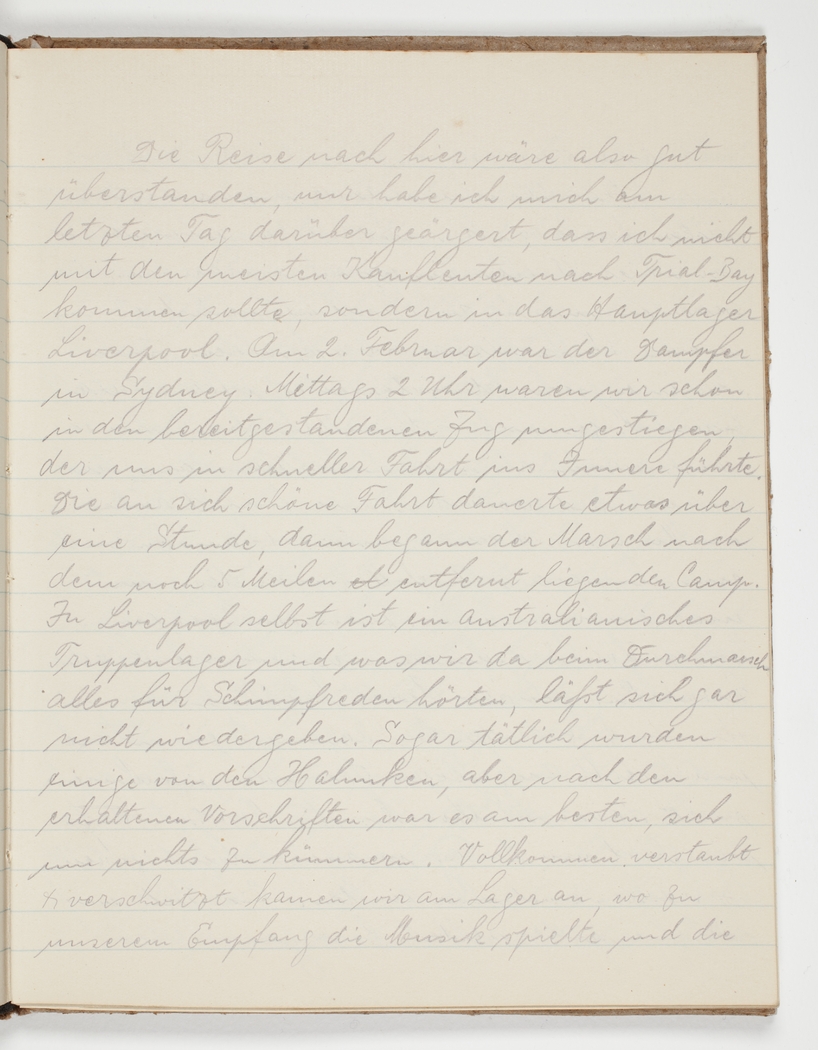 Die Reise nach hier wäre also gut
überstanden, nur habe ich mich am
letzten Tag darüber geärgert, dass ich nicht
mit den meisten Kaufleuten nach Trial-Bay
kommen sollte, sondern in das Hauptlager
Liverpool. Am 2. Februar war der Dampfer
in Sydney. Mittags 2 Uhr waren wir schon
in den bereitgestandenen Zug umgestiegen,
der uns in schneller Fahrt ins Innere führte.
Die an sich schöne Fahrt dauerte etwas über
eine Stunde, dann begann der Marsch nach
dem noch 5 Meilen et entfernt liegenden Camp.
In Liverpool selbst ist ein australianisches
Truppenlager und was wir da beim Durchmarsch
alles für Schimpfreden hörten, läßt sich gar
nicht wiedergeben. Sogar tätlich wurden
einige von den Halunken, aber nach den
erhaltenen Vorschriften war es am besten, sich
um nichts zu kümmern. Vollkommen verstaubt
& verschwitzt kamen wir am Lager an, wo zu
unserem Empfang die Musik spielte und die